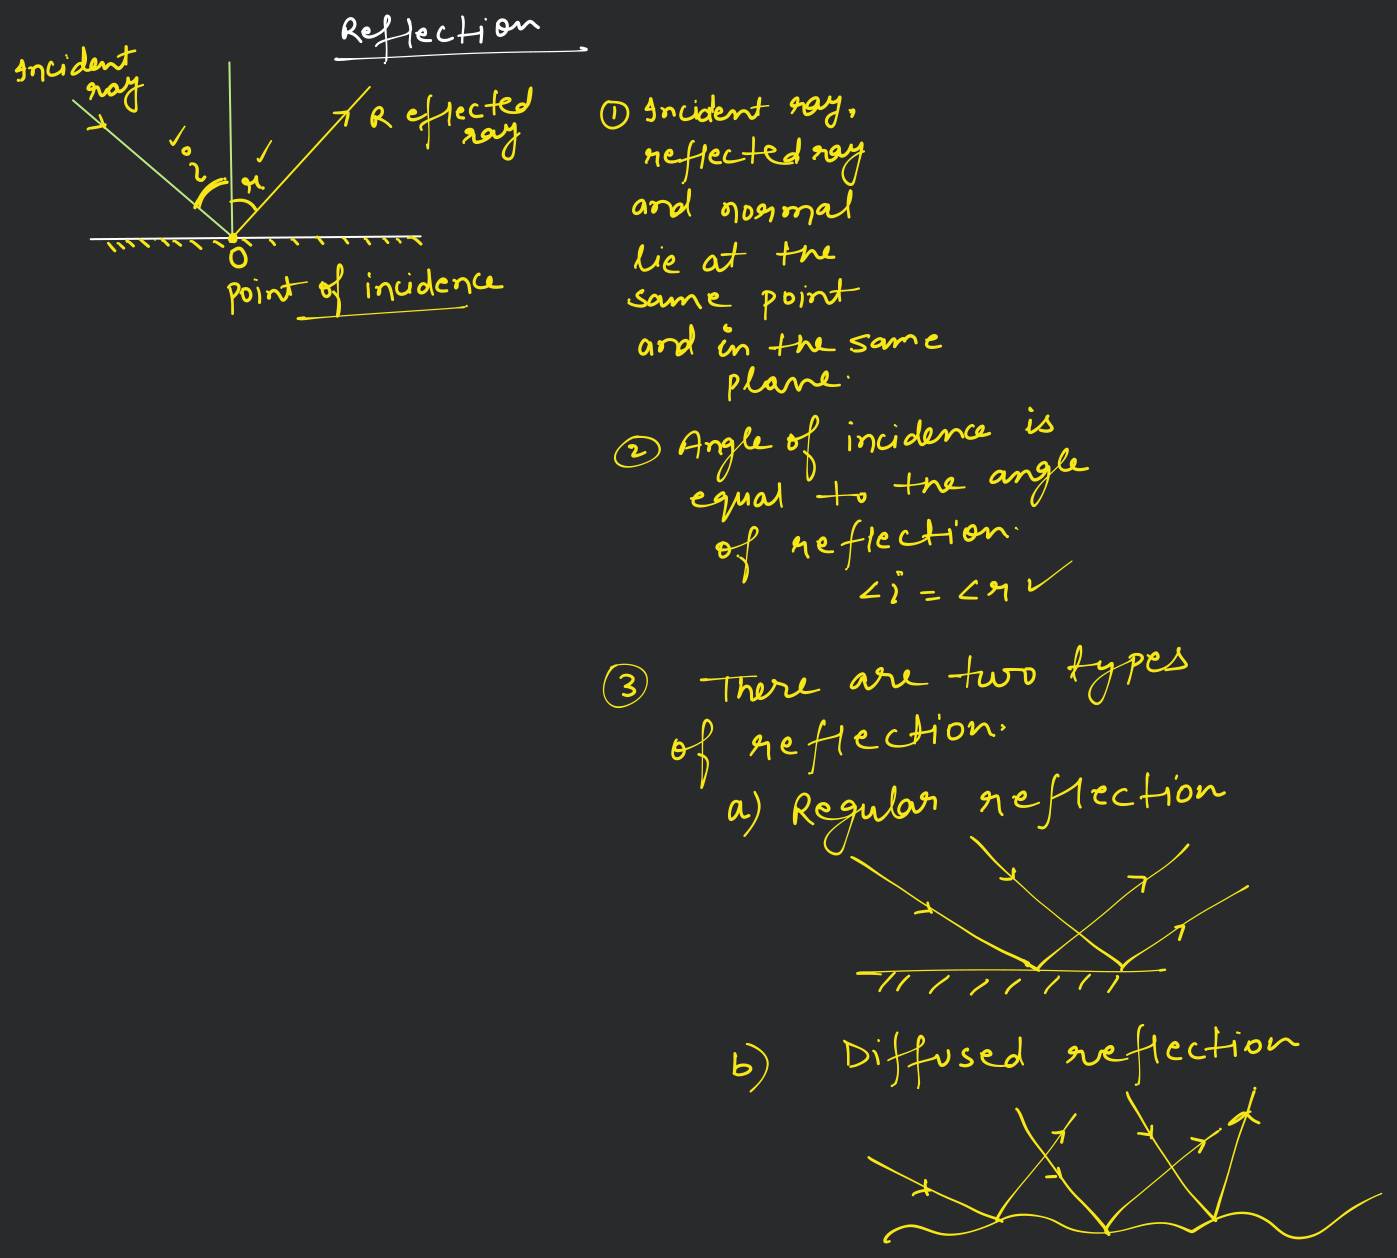 Reflection
Incident
ray
Reflected
ray
i
r
O
point of incidence
① Incident ray,
reflected ray
and normal
lie at the
same point
and in the same
plane.
② Angle of incidence is
equal to the angle
of reflection.
∠i = ∠r ✓
③ There are two types
of reflection.
a) Regular reflection
b) Diffused reflection